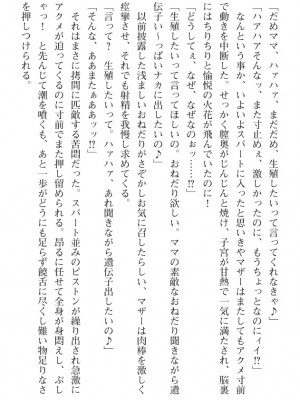 「だめママ、ハァハァ、まだだめ、生殖したいって言ってくれなきゃ♪」
「ハァハァそんなッ、また寸止めぇ、激しかったのに、もうちょっとなのにィイ!?」
なんという事か、いよいよスパートに入ったと思いきやマザーはまたしてもアクメ寸前
で動きを中断した。せっかく膣奥がじんじんと焼け、子宮が甘熱で一気に満たされ、脳裏
にはちりちりと愉悦の火花が飛んでいたのに!
「どうしてぇ、なぜ、なぜなのぉッ……!?」
「生殖したいって言ってほしいの。おねだり欲しい。ママの素敵なおねだり聞きながら遺
伝子いっぱいナカに出したいの♪」
以前披露した浅ましいおねだりがさぞかしお気に召したらしい、マザーは肉棒を激しく
痙攣させ、それでも射精を我慢し求めてくる。
「言って? 生殖したいって、ハァハァ、あれ聞きながら遺伝子出したいの♪」
「そんな、ああまたぁああッッ!?」
それはまさに拷問に匹敵する苦悶だった。スパート並みのピストンが繰り出され急激に
アクメが迫ってくるのに寸前でまた押し留められる。昂るに任せて全身が身悶えし、ぷし
ゃっ! と先んじて潮を噴くも、あと一歩がどうにも足らず饒舌に尽くし難い物足りなさ
を押しつけられる。